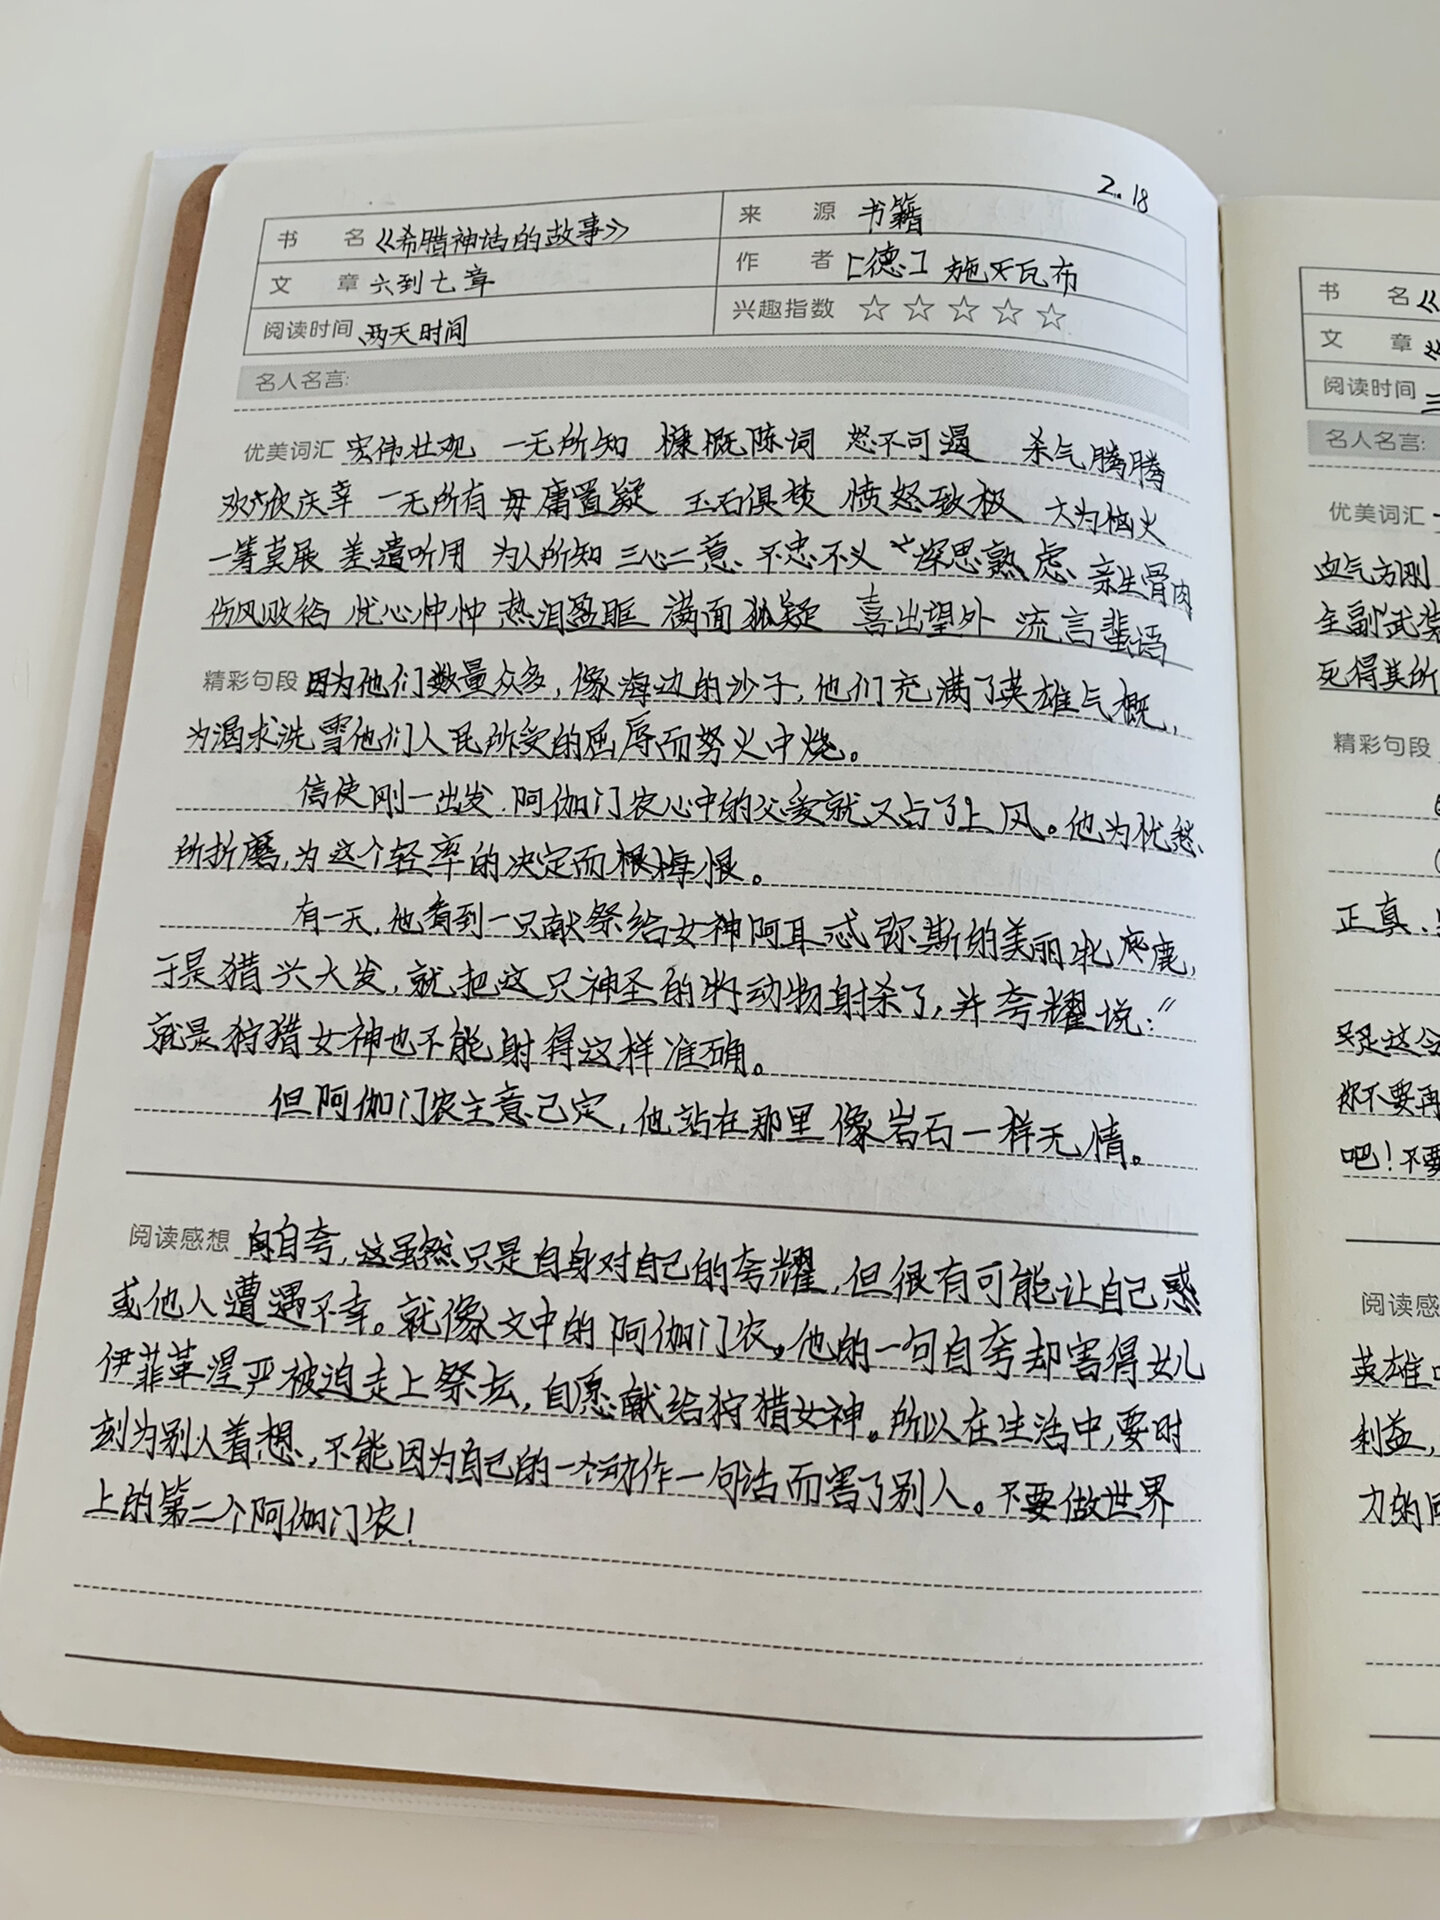 2.18
书 名 《希腊神话的故事》 来 源 书籍
文 章 六到七章 作 者 [德] 施瓦布
阅读时间 两天时间 兴趣指数 ☆ ☆ ☆ ☆ ☆
名人名言:
优美词汇 宏伟壮观 一无所知 慷慨陈词 怒不可遏 杀气腾腾
欢欣庆幸 一无所有 毋庸置疑 玉石俱焚 愤怒致极 大为恼火
一筹莫展 差遣听用 为人所知 三心二意 不忠不义 深思熟虑 亲生骨肉
伤风败俗 忧心忡忡 热泪盈眶 满面狐疑 喜出望外 流言蜚语
精彩句段 因为他们数量众多,像海边的沙子,他们充满了英雄气概,
为渴求洗雪他们人民所受的屈辱而努火中烧。
信使刚一出发,阿伽门农心中的父爱就又占了上风。他为忧愁
所折磨,为这个轻率的决定而悔恨。
有一天,他看到一只献祭给女神阿耳忒弥斯的美丽牝鹿,
于是猎兴大发,就把这只神圣的动物射杀了,并夸耀说:“
就是狩猎女神也不能射得这样准确。
但阿伽门农主意已定,他站在那里像岩石一样无情。
阅读感想 自夸,这虽然只是自身对自己的夸耀,但很有可能让自己
或他人遭遇不幸。就像文中的阿伽门农,他的一句自夸却害得女儿
伊菲革涅亚被迫走上祭坛,自愿献给狩猎女神。所以在生活中,要时
刻为别人着想,不能因为自己的一个动作一句话而害了别人。不要做世界
上的第二个阿伽门农!
书 名 《
文 章 《
阅读时间 三
名人名言:
优美词汇
血气方刚
全副武装
死得其所
精彩句段
正真、
你不要再
吧!不要
阅读感
英雄
利益,
力的